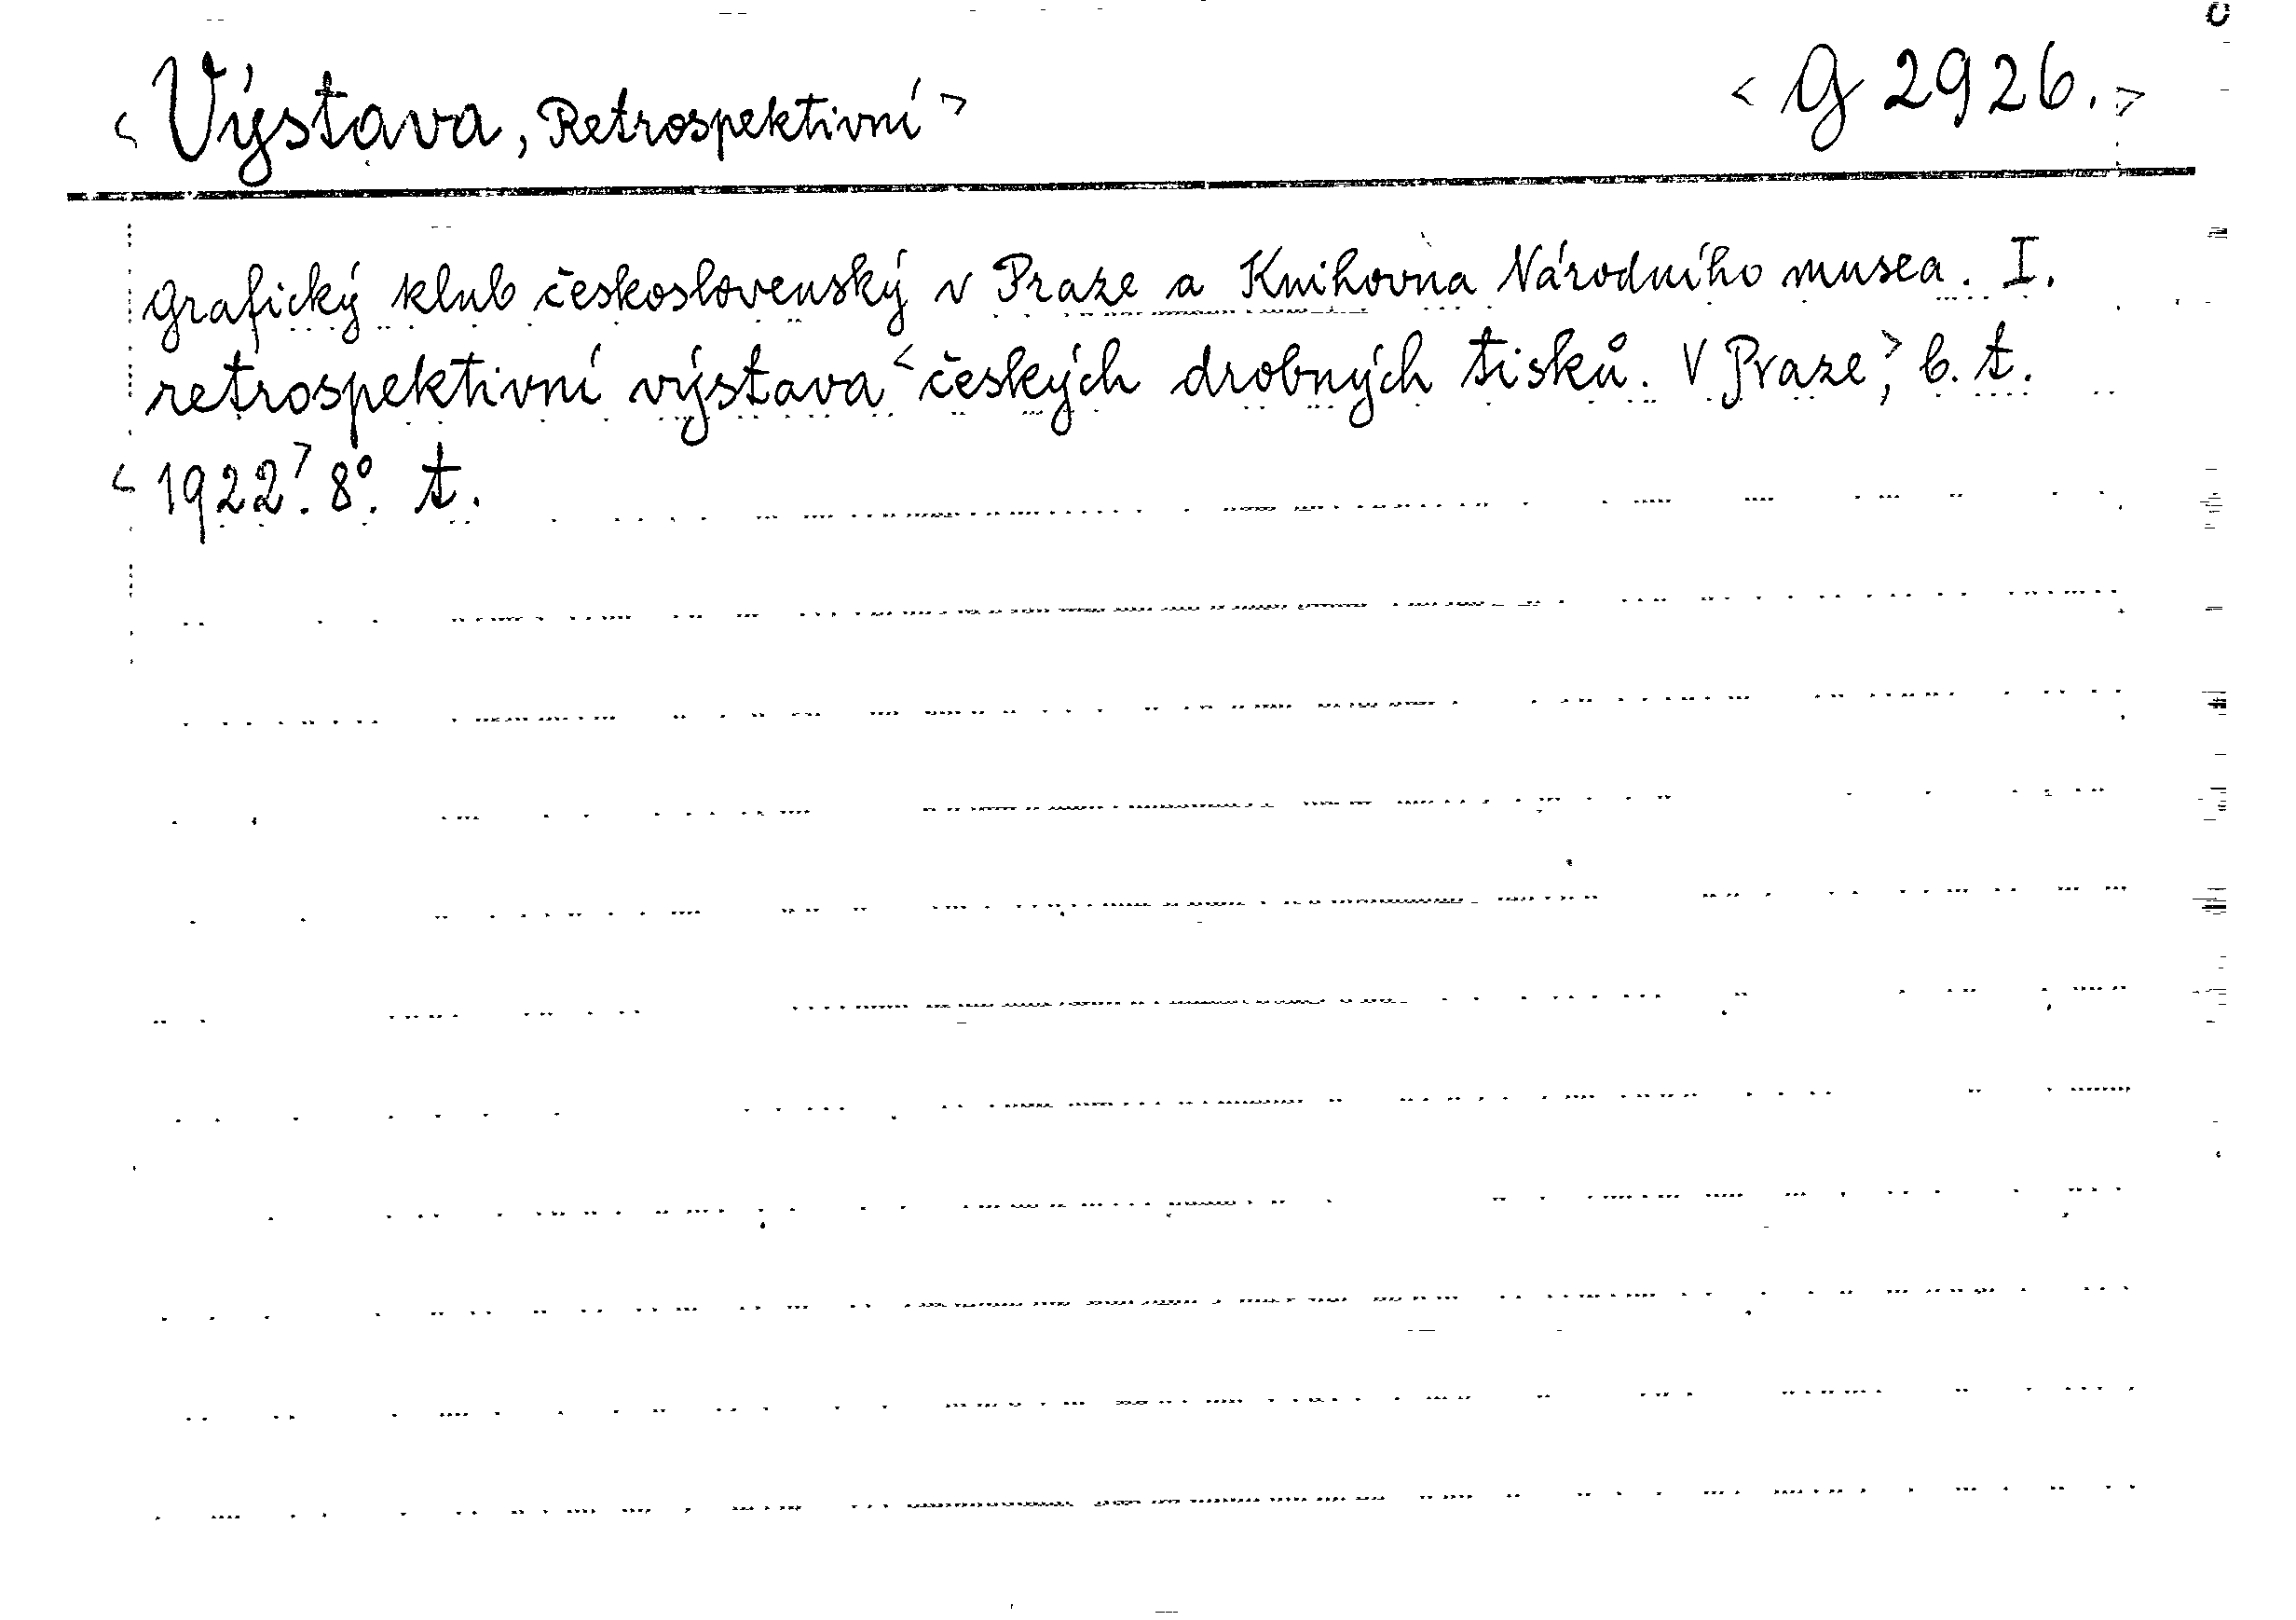 <Výstava, Retrospektivní> <G 2926.>
Grafický klub československý v Praze a Knihovna Národního musea. I.
retrospektivní výstava <českých drobných tisků. V Praze,> b. t.
<1922>. 8°. t.